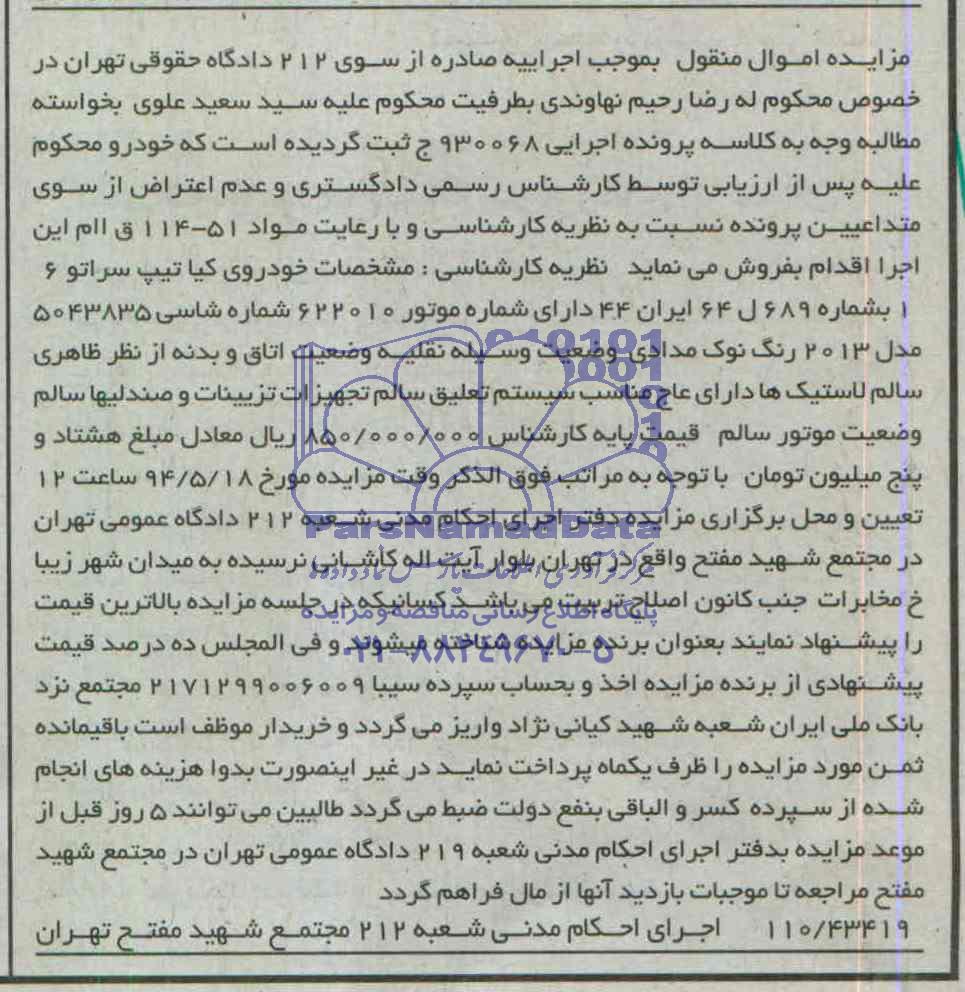 مزایده اموال منقول بموجب اجراییه صادره از سوی ۲۱۲ دادگاه حقوقی تهران در
خصوص محکوم له رضا رحیم نهاوندی بطرفیت محکوم علیه سید سعید علوی بخواسته
مطالبه وجه به کلاسه پرونده اجرایی ۹۳۰۰۶۸ ج ثبت گردیده است که خودرو محکوم
علیه پس از ارزیابی توسط کارشناس رسمی دادگستری و عدم اعتراض از سوی
متداعیین پرونده نسبت به نظریه کارشناسی و با رعایت مواد ۵۱-۱۱۴ ق اام این
اجرا اقدام بفروش می نماید نظریه کارشناسی : مشخصات خودروی کیا تیپ سراتو ۶
۱ بشماره ۶۸۹ ل ۶۴ ایران ۴۴ دارای شماره موتور ۶۲۲۰۱۰ شماره شاسی ۵۰۴۳۸۳۵
مدل ۲۰۱۳ رنگ نوک مدادی وضعیت وسیله نقلیه وضعیت اتاق و بدنه از نظر ظاهری
سالم لاستیک ها دارای عاج مناسب سیستم تعلیق سالم تجهیزات تزیینات و صندلیها سالم
وضعیت موتور سالم قیمت پایه کارشناس ۸۵۰/۰۰۰/۰۰۰ ریال معادل مبلغ هشتاد و
پنج میلیون تومان با توجه به مراتب فوق الذکر وقت مزایده مورخ ۹۴/۵/۱۸ ساعت ۱۲
تعیین و محل برگزاری مزایده دفتر اجرای احکام مدنی شعبه ۲۱۲ دادگاه عمومی تهران
ParsNamadData
در مجتمع شهید مفتح واقع در تهران بلوار آیت اله کاشانی نرسیده به میدان شهر زیبا
مرکز فرآوری اطلاعات پارس نماد داده‌ها
خ مخابرات جنب کانون اصلاح تربیت می باشد کسانیکه در جلسه مزایده بالاترین قیمت
پایگاه اطلاع رسانی مناقصه و مزایده
را پیشنهاد نمایند بعنوان برنده مزایده شناخته میشوند و فی المجلس ده درصد قیمت
۰۲۱-۸۸۳۴۹۶۷۰-۵
پیشنهادی از برنده مزایده اخذ و بحساب سپرده سیبا ۲۱۷۱۲۹۹۰۰۶۰۰۹ مجتمع نزد
بانک ملی ایران شعبه شهید کیانی نژاد واریز می گردد و خریدار موظف است باقیمانده
ثمن مورد مزایده را ظرف یکماه پرداخت نماید در غیر اینصورت بدوا هزینه های انجام
شده از سپرده کسر و الباقی بنفع دولت ضبط می گردد طالبین می توانند ۵ روز قبل از
موعد مزایده بدفتر اجرای احکام مدنی شعبه ۲۱۹ دادگاه عمومی تهران در مجتمع شهید
مفتح مراجعه تا موجبات بازدید آنها از مال فراهم گردد
۱۱۰/۴۳۴۱۹ اجرای احکام مدنی شعبه ۲۱۲ مجتمع شهید مفتح تهران